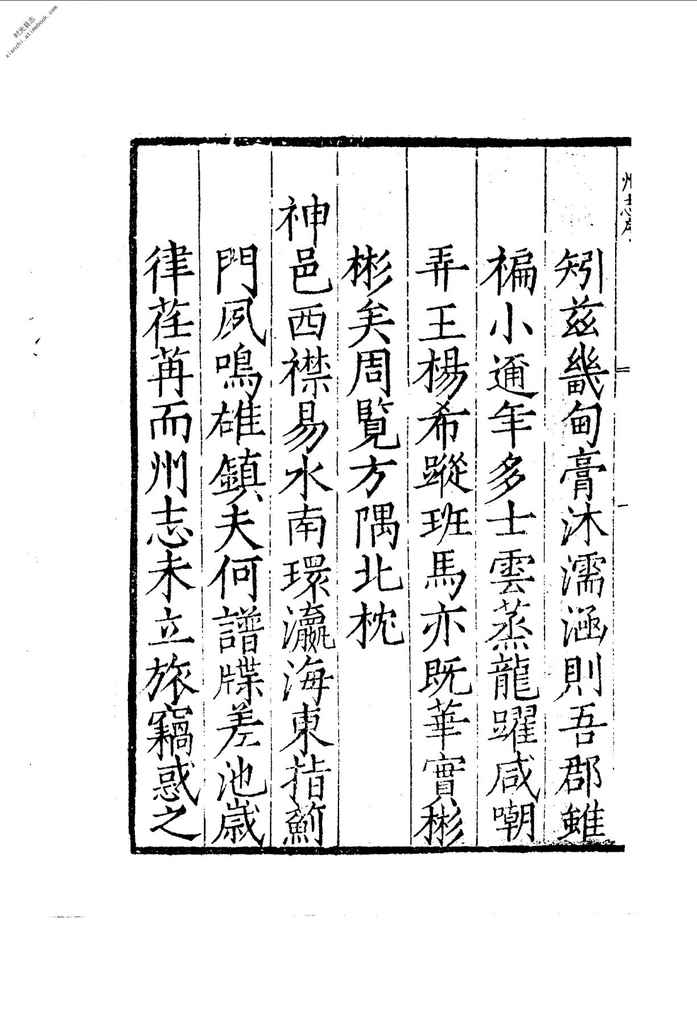 州志序
矧兹畿甸膏沐濡涵則吾郡雖
褊小邇年多士雲蒸龍躍咸嘲
弄王楊希蹤班馬亦既華實彬
彬矣周覽方隅北枕
神邑西襟易水南環瀛海東指薊
門夙鳴雄鎮夫何譜牒差池歲
律荏苒而州志未立旅竊惑之